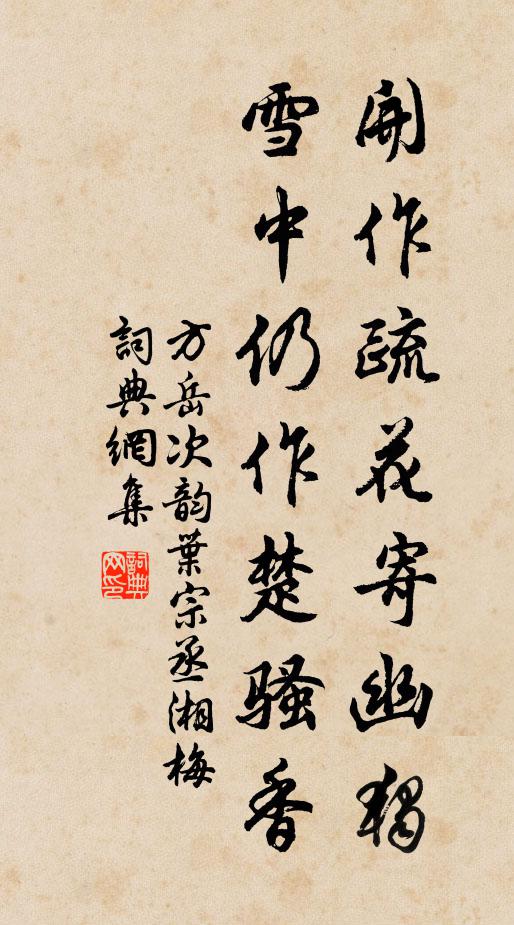 開作疏花寄幽獨
雪中仍作楚骚香
方岳次韵葉宗丞湘梅
詞典網集
詞典網印